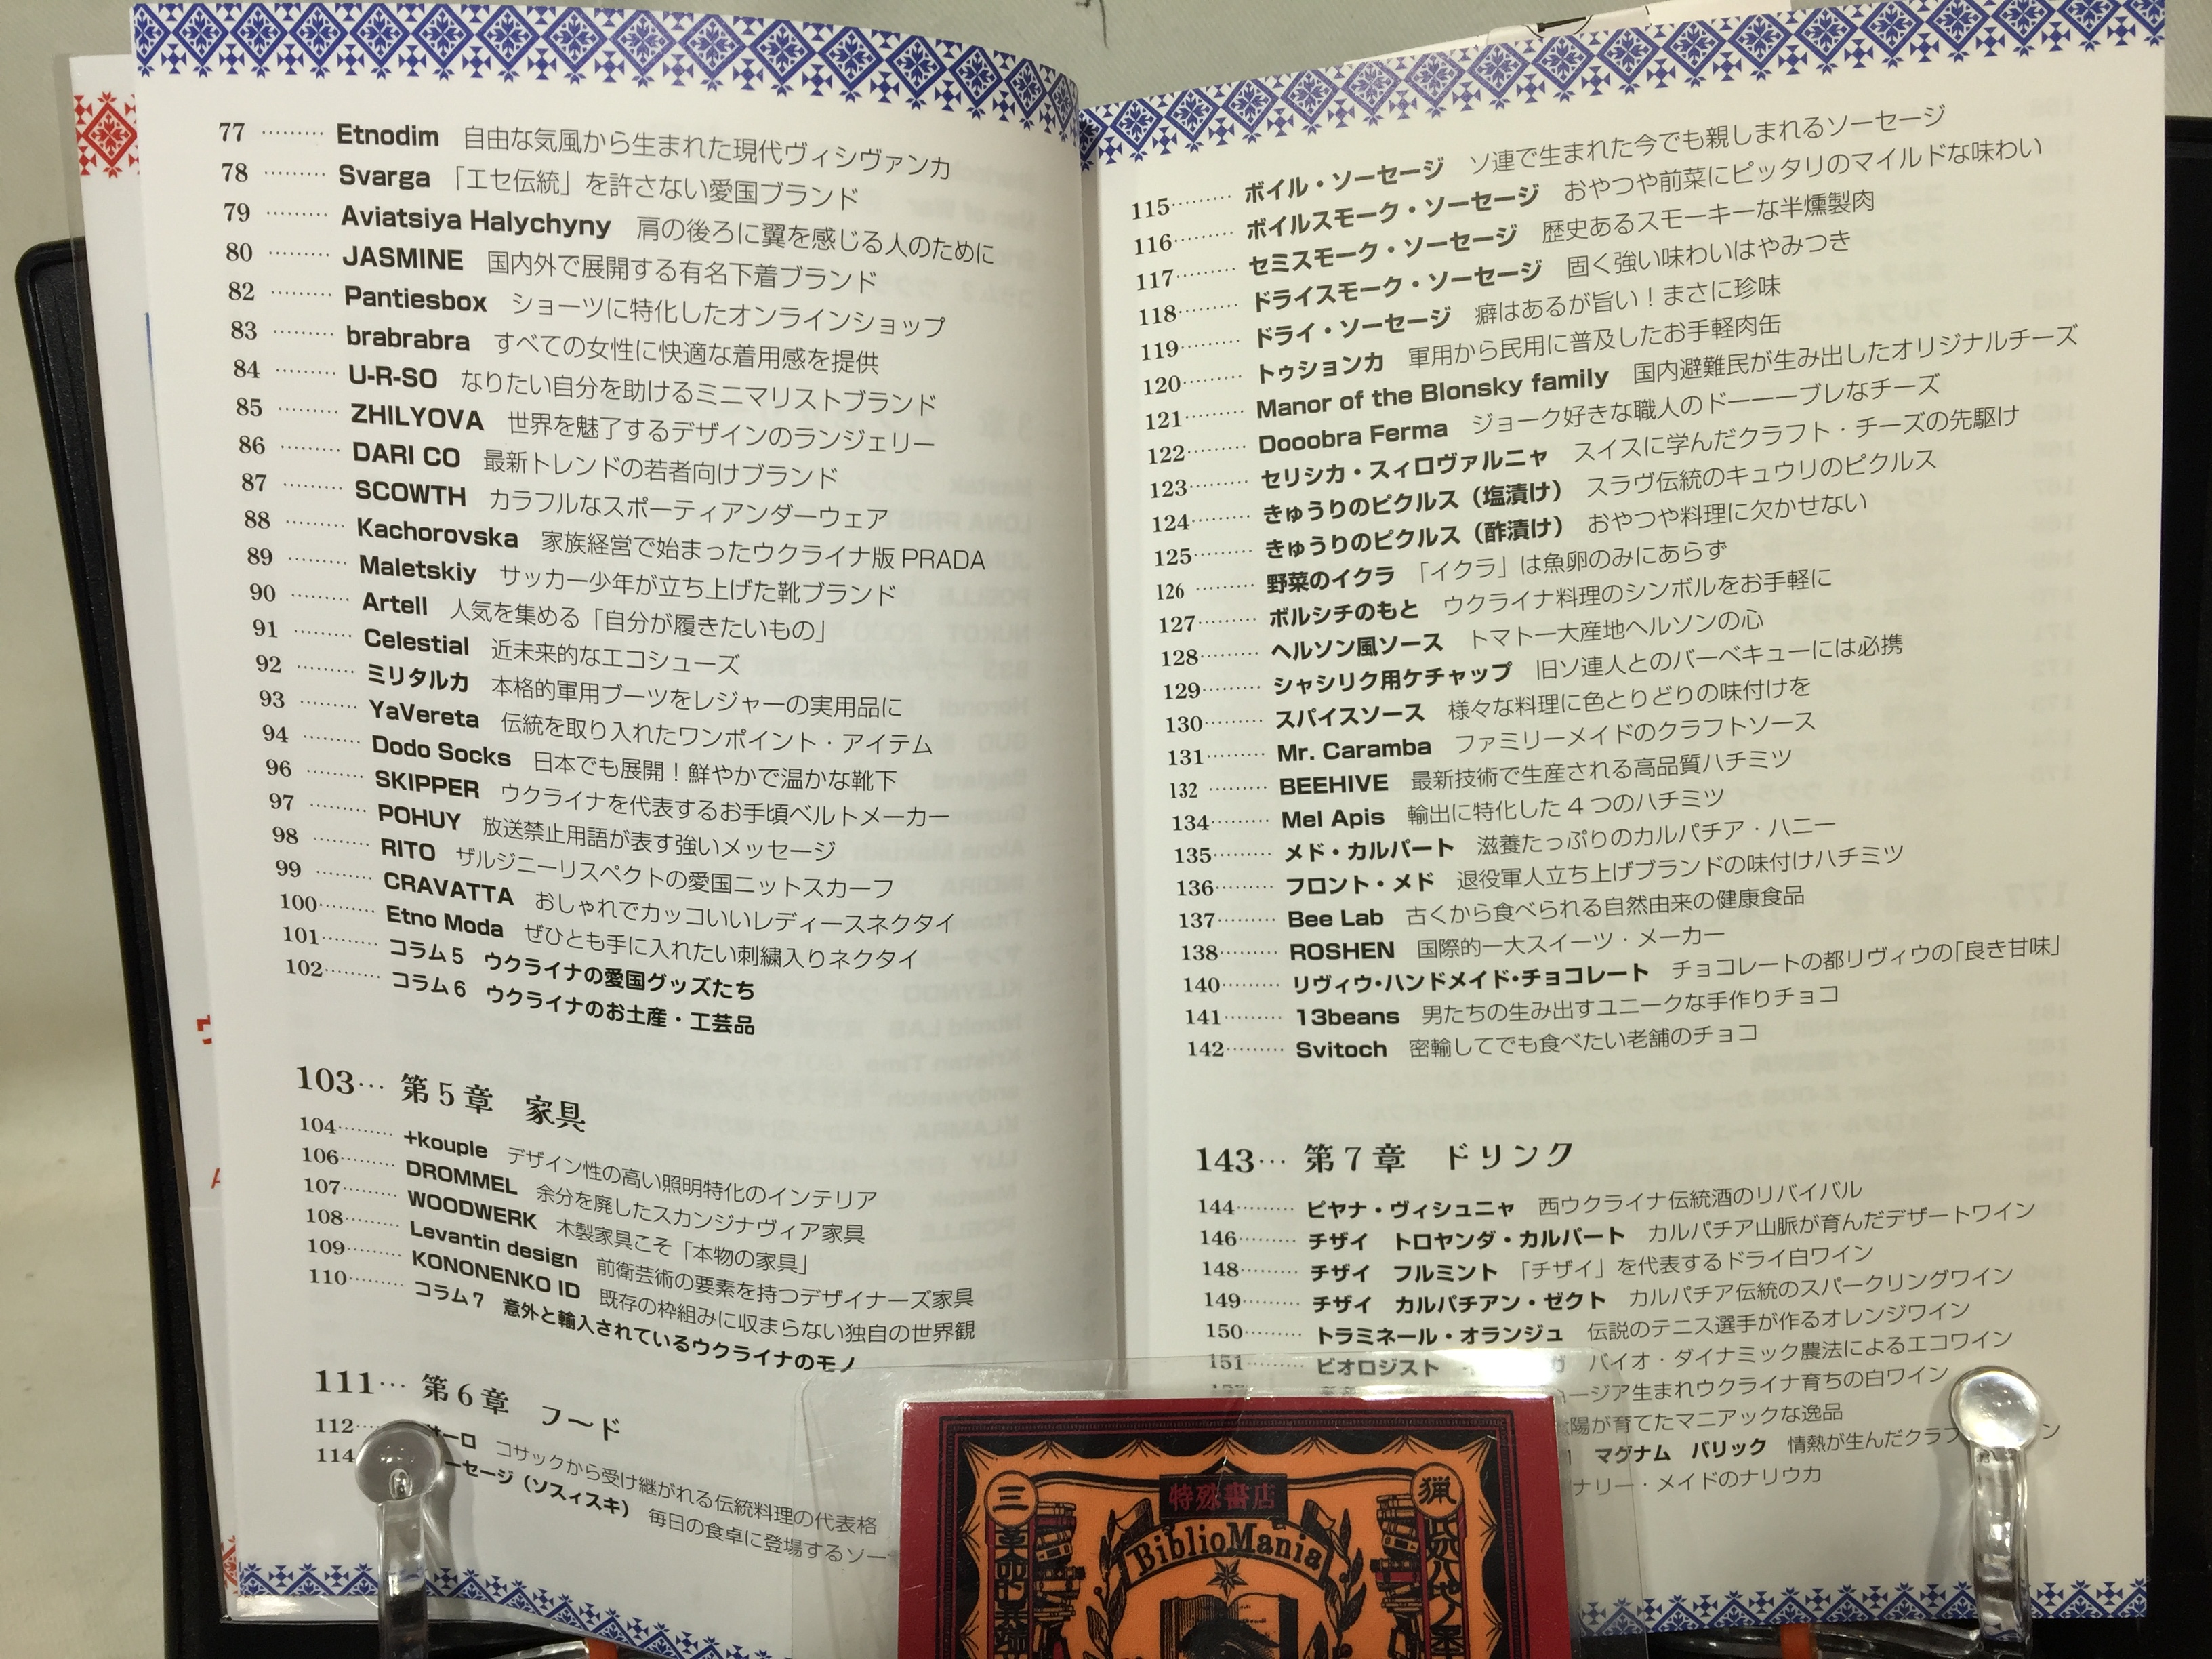 77 ……… Etnodim 自由な気風から生まれた現代ヴィシヴァンカ
78 ……… Svarga 「エセ伝統」を許さない愛国ブランド
79 ……… Aviatsiya Halychyny 肩の後ろに翼を感じる人のために
80 ……… JASMINE 国内外で展開する有名下着ブランド
82 ……… Pantiesbox ショーツに特化したオンラインショップ
83 ……… brabrabra すべての女性に快適な着用感を提供
84 ……… U-R-SO なりたい自分を助けるミニマリストブランド
85 ……… ZHILYOVA 世界を魅了するデザインのランジェリー
86 ……… DARI CO 最新トレンドの若者向けブランド
87 ……… SCOWTH カラフルなスポーティアンダーウェア
88 ……… Kachorovska 家族経営で始まったウクライナ版 PRADA
89 ……… Maletskiy サッカー少年が立ち上げた靴ブランド
90 ……… Artell 人気を集める「自分が履きたいもの」
91 ……… Celestial 近未来的なエコシューズ
92 ……… ミリタルカ 本格的軍用ブーツをレジャーの実用品に
93 ……… YaVereta 伝統を取り入れたワンポイント・アイテム
94 ……… Dodo Socks 日本でも展開！鮮やかで温かな靴下
96 ……… SKIPPER ウクライナを代表するお手頃ベルトメーカー
97 ……… POHUY 放送禁止用語が表す強いメッセージ
98 ……… RITO ザルジニーリスペクトの愛国ニットスカーフ
99 ……… CRAVATTA おしゃれでカッコいいレディースネクタイ
100……… Etno Moda ぜひとも手に入れたい刺繍入りネクタイ
101……… コラム 5 ウクライナの愛国グッズたち
102……… コラム 6 ウクライナのお土産・工芸品
103… 第 5 章 家具
104……… +kouple デザイン性の高い照明特化のインテリア
106……… DROMMEL 余分を廃したスカンジナヴィア家具
107……… WOODWERK 木製家具こそ「本物の家具」
108……… Levantin design 前衛芸術の要素を持つデザイナーズ家具
109……… KONONENKO ID 既存の枠組みに収まらない独自の世界観
110……… コラム 7 意外と輸入されているウクライナのモノ
111… 第 6 章 フード
112… サーロ コサックから受け継がれる伝統料理の代表格
114 ーセージ（ソスィスキ） 毎日の食卓に登場するソー
115……… ボイル・ソーセージ ソ連で生まれた今でも親しまれるソーセージ
116……… ボイルスモーク・ソーセージ おやつや前菜にピッタリのマイルドな味わい
117……… セミスモーク・ソーセージ 歴史あるスモーキーな半燻製肉
118……… ドライスモーク・ソーセージ 固く強い味わいはやみつき
119……… ドライ・ソーセージ 癖はあるが旨い！まさに珍味
120……… トゥションカ 軍用から民用に普及したお手軽肉缶
121……… Manor of the Blonsky family 国内避難民が生み出したオリジナルチーズ
122……… Dooobra Ferma ジョーク好きな職人のドーーーブレなチーズ
123……… セリシカ・スィロヴァルニャ スイスに学んだクラフト・チーズの先駆け
124……… きゅうりのピクルス（塩漬け） スラヴ伝統のキュウリのピクルス
125……… きゅうりのピクルス（酢漬け） おやつや料理に欠かせない
126 ……… 野菜のイクラ 「イクラ」は魚卵のみにあらず
127……… ボルシチのもと ウクライナ料理のシンボルをお手軽に
128……… ヘルソン風ソース トマト一大産地ヘルソンの心
129……… シャシリク用ケチャップ 旧ソ連人とのバーベキューには必携
130……… スパイスソース 様々な料理に色とりどりの味付けを
131……… Mr. Caramba ファミリーメイドのクラフトソース
132 ……… BEEHIVE 最新技術で生産される高品質ハチミツ
134……… Mel Apis 輸出に特化した 4 つのハチミツ
135……… メド・カルパート 滋養たっぷりのカルパチア・ハニー
136……… フロント・メド 退役軍人立ち上げブランドの味付けハチミツ
137……… Bee Lab 古くから食べられる自然由来の健康食品
138……… ROSHEN 国際的一大スイーツ・メーカー
140……… リヴィウ・ハンドメイド・チョコレート チョコレートの都リヴィウの「良き甘味」
141……… 13beans 男たちの生み出すユニークな手作りチョコ
142……… Svitoch 密輸してでも食べたい老舗のチョコ
143… 第 7 章 ドリンク
144……… ピヤナ・ヴィシュニャ 西ウクライナ伝統酒のリバイバル
146……… チザイ トロヤンダ・カルパート カルパチア山脈が育んだデザートワイン
148……… チザイ フルミント 「チザイ」を代表するドライ白ワイン
149……… チザイ カルパチアン・ゼクト カルパチア伝統のスパークリングワイン
150……… トラミネール・オランジュ 伝説のテニス選手が作るオレンジワイン
151……… ビオロジスト バイオ・ダイナミック農法によるエコワイン
ージア生まれウクライナ育ちの白ワイン
陽が育てたマニアックな逸品
マグナム バリック 情熱が生んだクラフ ン
ナリー・メイドのナリウカ
三
特殊書店
猟
BiblioMania